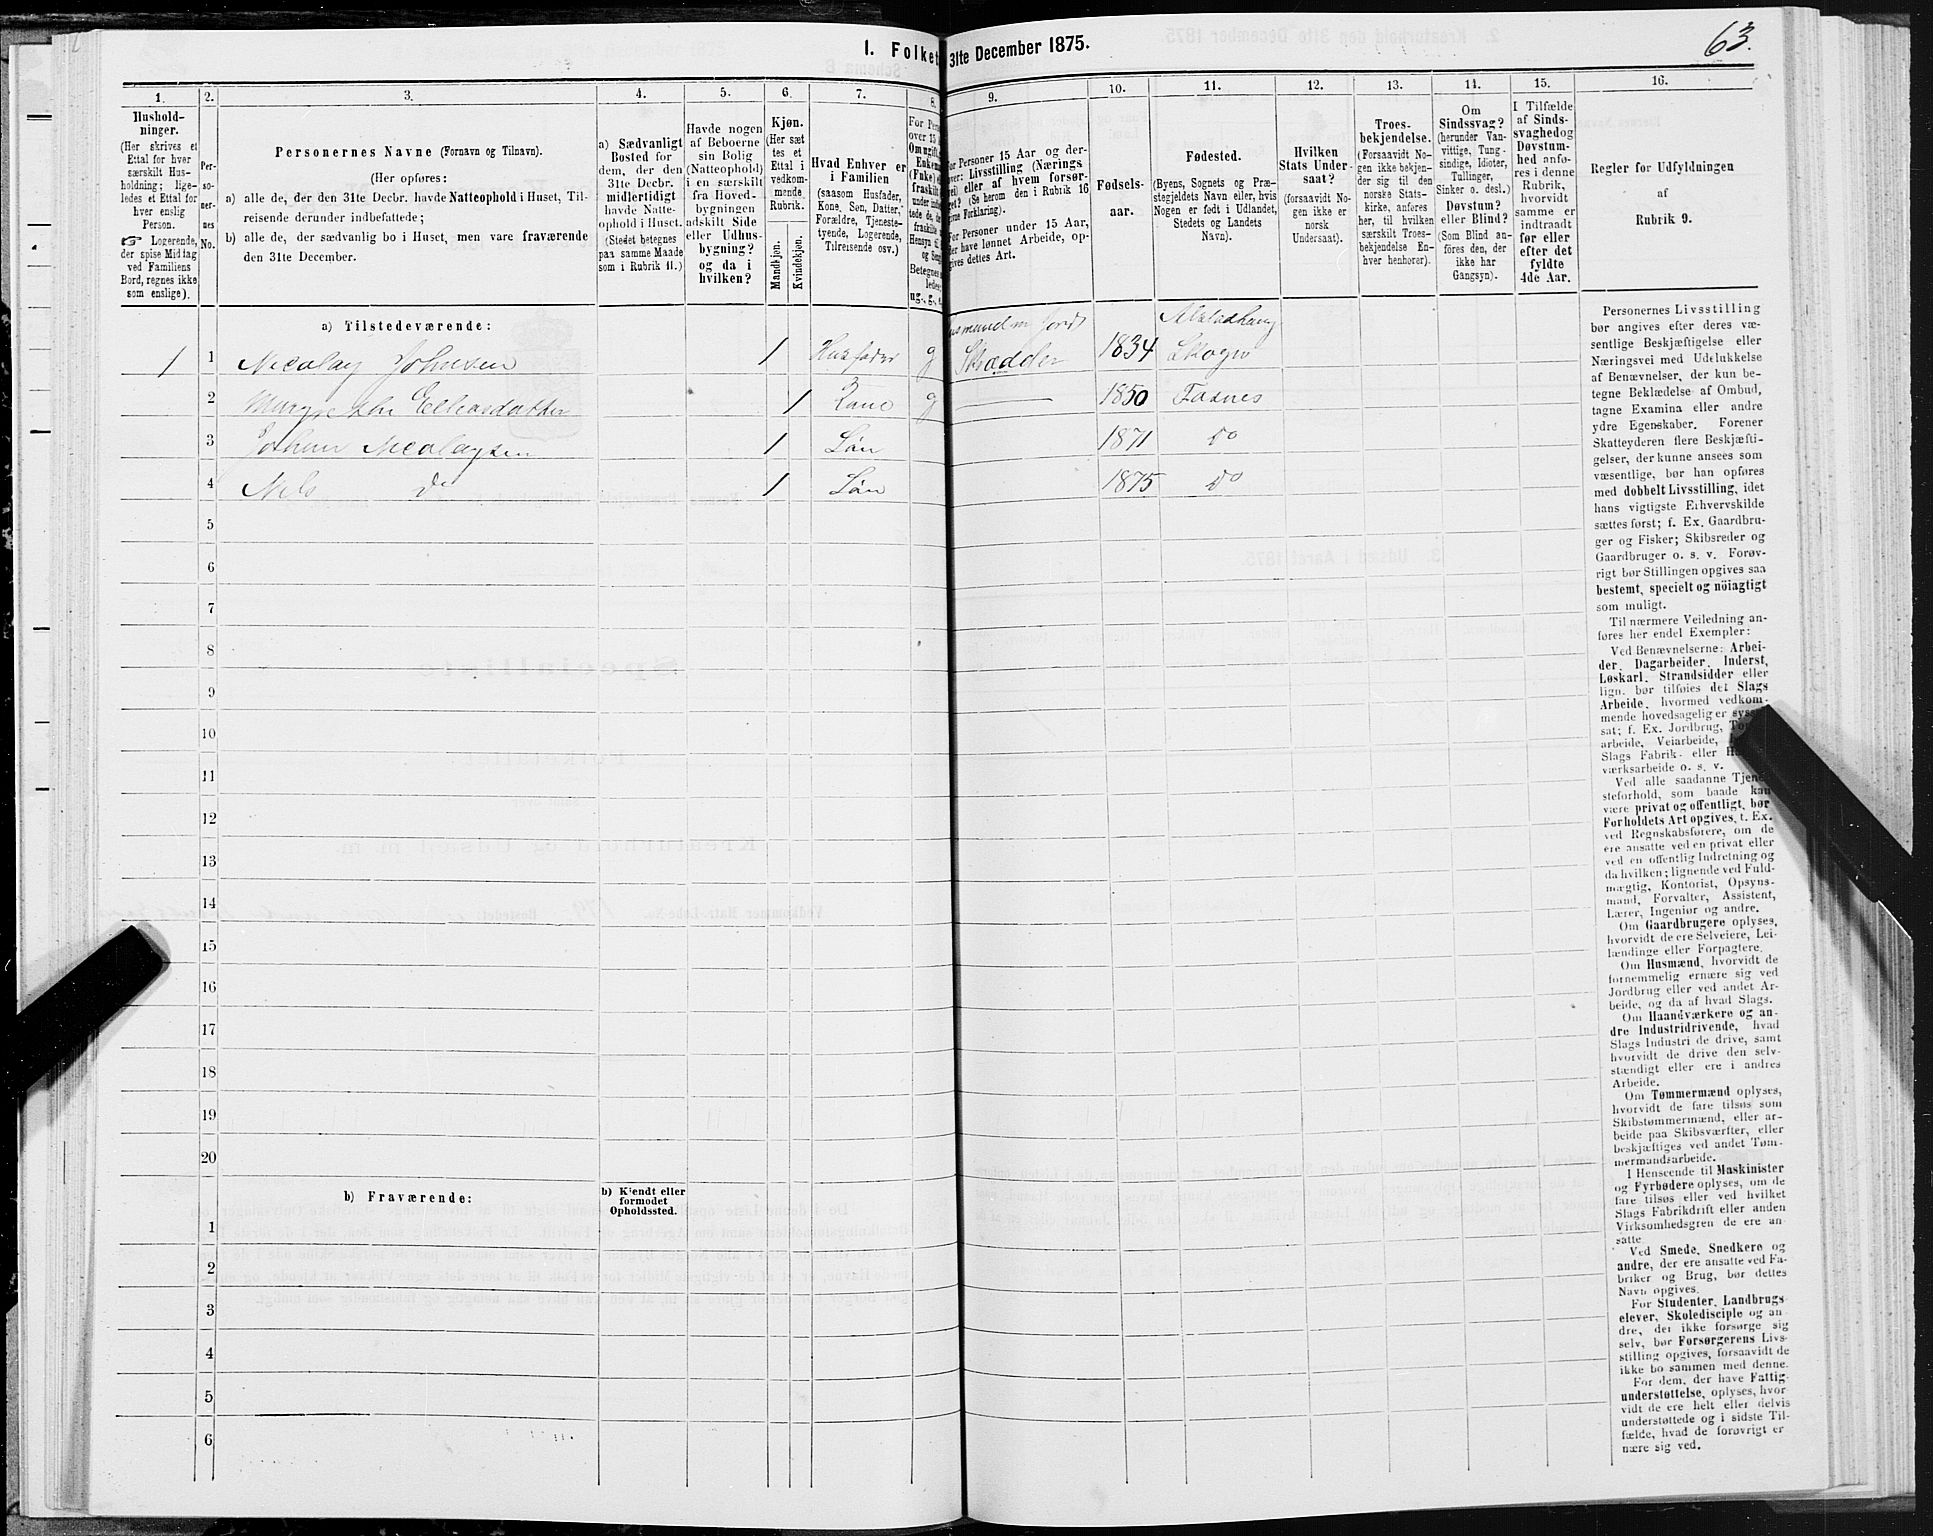 63.
I. Folket
31te December 1875.
1.
2.
3.
4.
5.
6.
7.
8.
9.
10.
11.
12.
13.
14.
15.
16.
Hushold-
ninger.
(Her skrives et
Ettal for hver
særskilt Hus-
holdning; lige-
ledes et Ettal for
hver enslig
Person.
☞ Logerende,
der spise Middag
ved Familiens
Bord, regnes ikke
som enslige).
Per-
so-
ner-
nes
No.
Personernes Navne (Fornavn og Tilnavn).
(Her opføres:
a) alle de, der den 31te Decbr. havde Natteophold i Huset, Til-
reisende derunder indbefattede;
b) alle de, der sædvanlig bo i Huset, men vare fraværende
den 31te December.
a) Sædvanligt
Bosted for
dem, der den
31te Decbr.
midlertidigt
havde Natte-
ophold i Huset.
(Stedet betegnes
paa samme Maade
som i Rubrik 11.)
Havde nogen
af Beboerne
sin Bolig
(Natteophold)
i en særskilt
fra Hoved-
bygningen
adskilt Side
eller Udhus-
bygning?
og da i
hvilken?
Kjøn.
(Her sæt
tes et
Ettal i
vedkom-
mende
Rubrik.
Mandkjøn.
Kvindekjøn.
Hvad Enhver er
i Familien
(saasom Husfader,
Kone, Søn, Datter,
Forældre, Tjeneste-
tyende, Logerende,
Tilreisende osv.)
For Pers
over 15
Om ugift,
Enkema
(Enke)
fraskilt
ug., g., e.
For Personer 15 Aar og der-
over: Livsstilling (Nærings
vei) eller af hvem forsør-
get? (Se herom den i Rubrik 16
givne Forklaring).
For Personer under 15 Aar,
der have lønnet Arbeide, op-
gives dettes Art.
Fødsels-
aar.
Fødested.
(Byens, Sognets og Præ-
stegjeldets Navn eller, hvis
Nogen er født i Udlandet,
Stedets og Landets
Navn).
Hvilken
Stats Under-
saat?
(forsaavidt No-
gen ikke er
norsk
Undersaat).
Troes-
bekjendelse.
(Forsaavidt No-
gen ikke bekjen-
der sig til den
norske Stats-
kirke, anføres
her, til hvilken
særskilt Troes-
bekjendelse En-
hver henhører).
Om
Sindssvag?
(herunder Van-
vittige, Tung-
sindige, Idioter,
Tullinger,
Sinker o. desl.)
Døvstum?
eller Blind?
(Som Blind an-
føres den, der
ikke har
Gangsyn).
I Tilfælde
af Sinds-
svaghed og
Døvstum-
hed anfø-
res i denne
Rubrik,
hvorvidt
samme er
indtraadt
før eller
efter det
fyldte
4de Aar.
Regler for Udfyldningen
af
Rubrik 9.
a) Tilstedeværende:
1 1 Nicolay Johnsen 1 Husfader g Husmand m Jord Skrædder 1834 Skogn
2 Margrethe Elleasdatter 1 Kone g — 1850 Fosnes
3 Johan Nicolaysen 1 Søn 1871 do
4 Nels do 1 Søn 1875 do
5
6
7
8
9
10
11
12
13
14
15
16
17
18
19
20
b) Fraværende:
b) Kjendt eller
formodet
Opholdssted.
1
2
3
4
5
6
Personernes Livsstilling
bør angives efter deres væ-
sentlige Beskjæftigelse eller
Næringsvei med Udelukkelse
af Benævnelser, der kun be-
tegne Beklædelse af Ombud,
tagne Examina eller andre
ydre Egenskaber. Forener
Skatteyderen flere Beskjæfti-
gelser, der kunne ansees som
væsentlige, bør han opføres
med dobbelt Livsstilling, idet
hans vigtigste Erhvervskilde
sættes først; f. Ex. Gaardbru-
ger og Fisker; Skibsreder og
Gaardbruger o. s. v. Forøv-
rigt bør Stillingen opgives saa
bestemt, specielt og nöiagtigt
som muligt.
Til nærmere Veiledning an-
føres her endel Exempler:
Ved Benævnelserne: Arbei-
der, Dagarbeider, Inderst,
Løskarl, Strandsidder eller
lign. bør tilføies det Slags
Arbeide, hvormed vedkom-
mende hovedsagelig er
sat; f. Ex. Jordbrug,
arbeide, Veiarbeide,
Slags Fabrik- eller
værksarbeide o. s. v.
Ved alle saadanne Tjene-
steforhold, som baade kan
være privat og offentligt, bør
Forholdets Art opgives, t. Ex.
ved Regnskabsførere, om de
ere ansatte ved en privat eller
ved en offentlig Indretning og
da hvilken; lignende ved Fuld-
mægtig, Kontorist, Opsyns-
mand, Forvalter, Assistent,
Lærer, Ingeniør og andre.
Om Gaardbrugere oplyses,
hvorvidt de ere Selveiere, Lei-
lændinge eller Forpagtere.
Om Husmænd, hvorvidt de
fornemmelig ernære sig ved
Jordbrug eller ved andet Ar-
beide, og da af hvad Slags.
Om Haandværkere og an-
dre Industridrivende, hvad
Slags Industri de drive, samt
hvorvidt de drive den selv-
stændigt eller ere i andres
Arbeide.
Om Tømmermænd oplyses,
hvorvidt de fare tilsøs som
Skibstømmermænd, eller ar-
beide paa Skibsværfter, eller
beskjæftiges ved andet Tøm-
mermandsarbeide.
I Henseende til Maskinister
og Fyrbødere oplyses, om de
fare tilsøs eller ved hvilket
Slags Fabrikdrift eller anden
Virksomhedsgren de ere an-
satte.
Ved Smede, Snedkere og
andre, der ere ansatte ved Fa-
briker og Brug, bør dettes
Navn opgives.
For Studenter, Landbrugs-
elever, Skoledisciple og an-
dre, der ikke forsørge sig
selv, bør Forsørgerens Livs-
stilling opgives, forsaavidt de
ikke bo sammen med denne.
For dem, der have Fattig-
understøttelse, oplyses, hvor-
vidt de ere helt eller delvis
understøttede og i sidste Til-
fælde, hvad de forøvrigt er
nære sig ved.